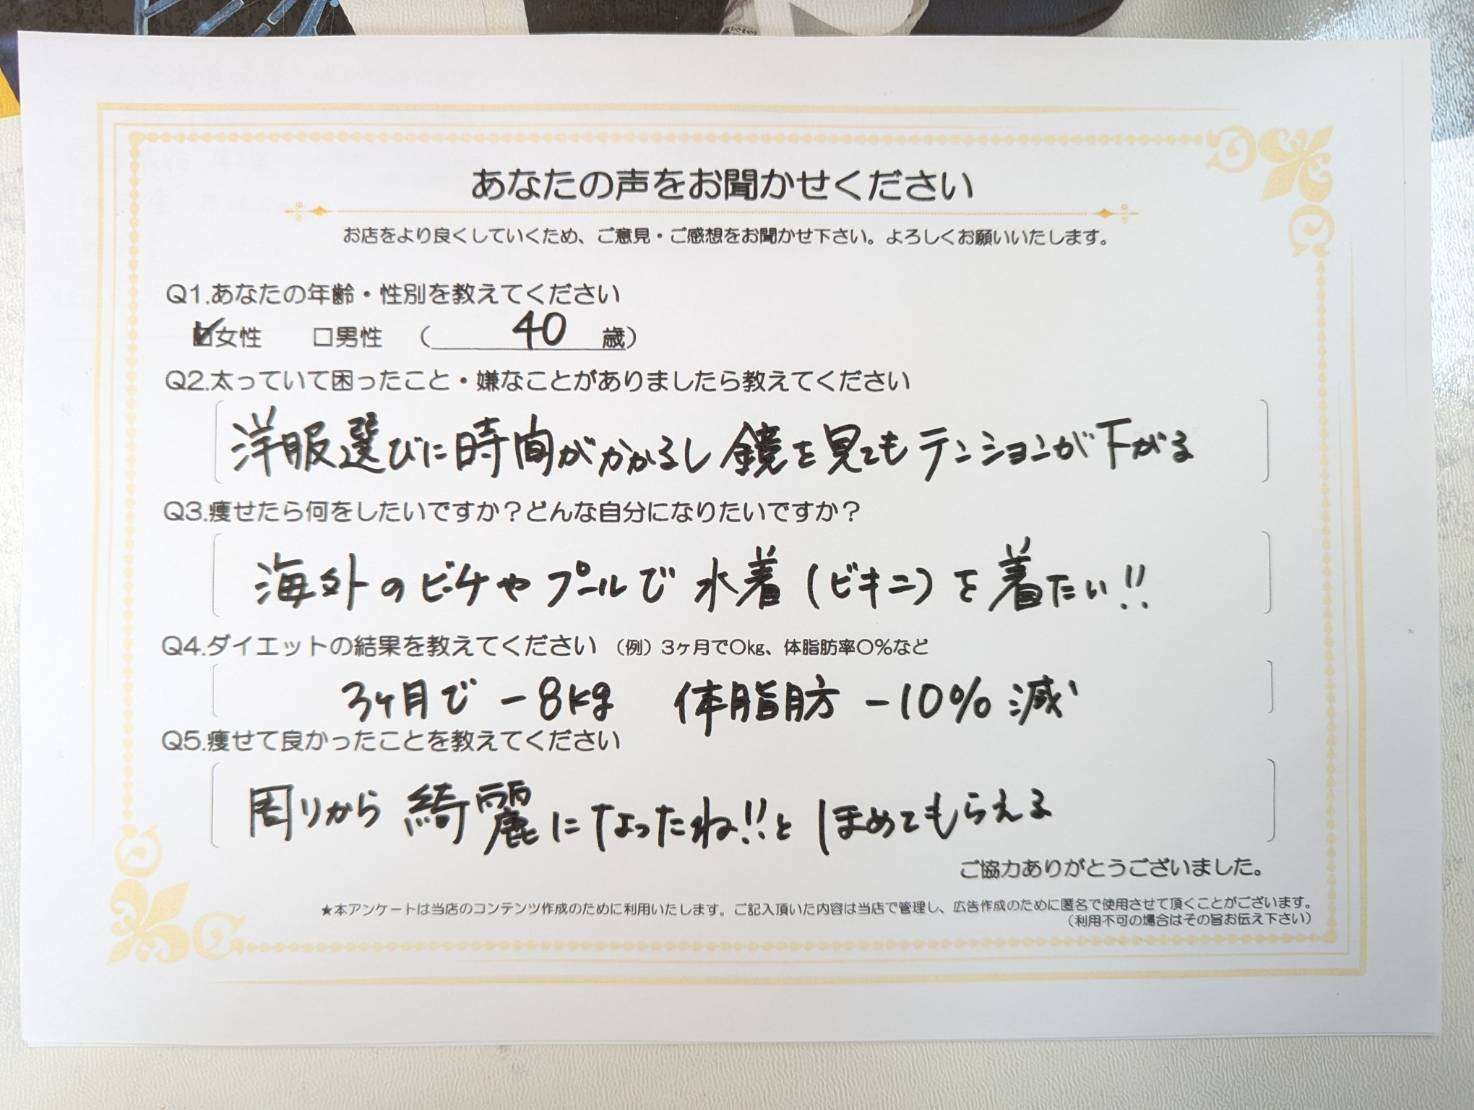 あなたの声をお聞かせください
お店をより良くしていくため、ご意見・ご感想をお聞かせ下さい。よろしくお願いいたします。
Q1.あなたの年齢・性別を教えてください
☑女性 □男性 （ 40 歳）
Q2.太っていて困ったこと・嫌なことがありましたら教えてください
洋服選びに時間がかかるし 鏡を見てもテンションが下がる
Q3.痩せたら何をしたいですか？どんな自分になりたいですか？
海外のビーチやプールで 水着（ビキニ）を着たい!!
Q4.ダイエットの結果を教えてください （例）3ヶ月で〇kg、体脂肪率〇%など
3ヶ月で -8kg 体脂肪 -10% 減
Q5.痩せて良かったことを教えてください
周りから 綺麗になったね!!と ほめてもらえる
ご協力ありがとうございました。
★本アンケートは当店のコンテンツ作成のために利用いたします。ご記入頂いた内容は当店で管理し、広告作成のために匿名で使用させて頂くことがございます。
（利用不可の場合はその旨お伝え下さい）